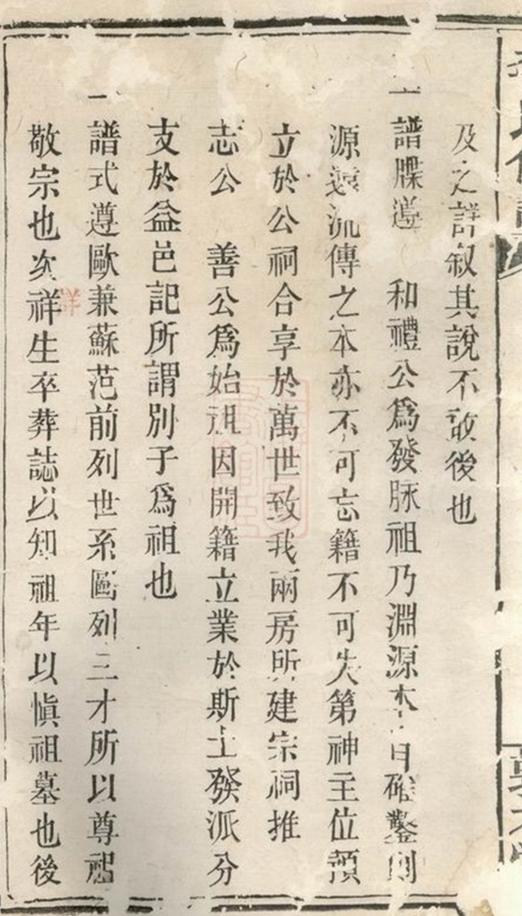 及之詳叙其說不敢後也
一譜牒遵 和禮公爲發脉祖乃淵源本自確鑿則
源遠流傳之本亦不可忘籍不可失第神主位預
立於公祠合享於萬世致我兩房所建宗祠推
志公 善公爲始祖因開籍立業於斯土發派分
支於益邑記所謂別子爲祖也
一譜式遵歐兼蘇范前列世系圖列三才所以尊祖
敬宗也次祥生卒葬誌以知祖年以愼祖墓也後
詳